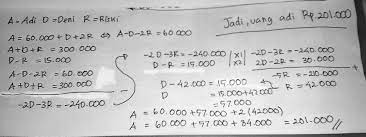 A = Adi D = Deni R = Riski
A = 60.000 + D + 2R ⇔ A-D-2R = 60.000
A+D+R = 300.000
D-R = 15.000
A-D-2R = 60.000
A+D+R = 300.000
-2D-3R = -240.000
-2D-3R = -240.000 |x1| -2D-3R = -240.000
D-R = 15.000 |x2| 2D-2R = 30.000
-5R = -210.000
R = 42.000
D-42.000 = 15.000
D = 15.000+42.000
= 57.000
A = 60.000 + 57.000 + 2(42.000)
A = 60.000 + 57.000 + 84.000 = 201.000
Jadi, uang adi Rp.201.000